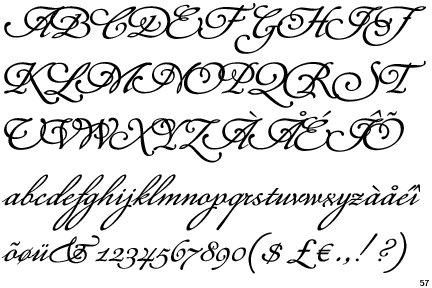 ABCDEFGHIJ
KLMNOPQRST
UVWXYZÀÅÉÎÕ
abcdefghijklmnopqrstuvwxyzàåéî
õøü&1234567890($£€.,!?)
57